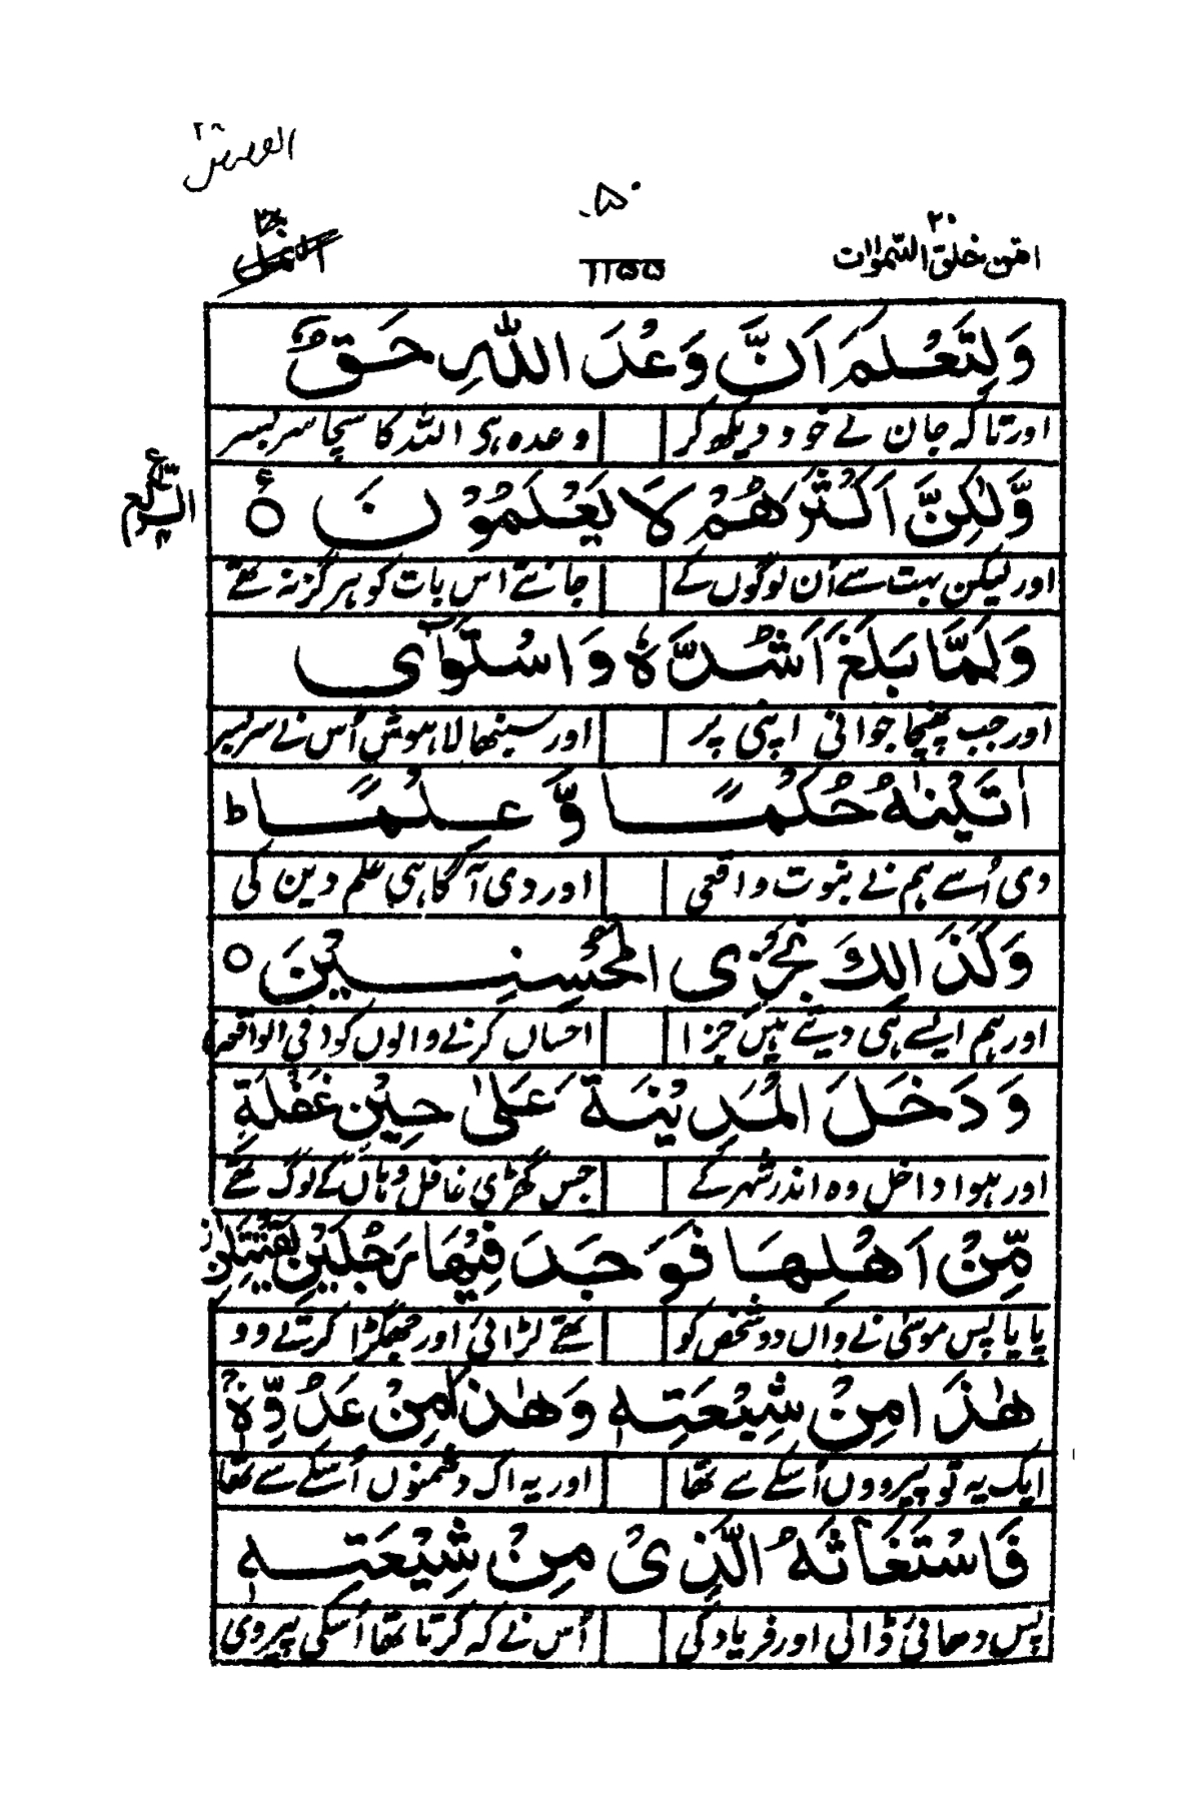 القصص ٢٨
۵۰
امّن خلق السّمٰوٰت ٢٠
١١۵۵
وَلِتَعْلَمَ اَنَّ وَعْدَ اللّٰهِ حَقٌّ
اور تا کہ جان لے خود دیکھ کر وعدہ ہی اللہ کا سچا سر بسر
وَّلٰكِنَّ اَكْثَرَهُمْ لَا يَعْلَمُوْنَ ۝
اور لیکن بہت سے اُن لوگوں کے جانتے اس بات کو ہرگز نہ تھے
وَلَمَّا بَلَغَ اَشُدَّهٗ وَاسْتَوٰٓى
اور جب پہنچا جوانی اپنی پر اور سنبھالا ہوش اُس نے سر بسر
اٰتَيْنٰهُ حُكْمًا وَّ عِلْمًا ؕ
دی اُسے ہم نے نبوت واقعی اور دی آگاہی علم دین کی
وَكَذٰلِكَ نَجْزِى الْمُحْسِنِيْنَ ۝
اور ہم ایسے ہی دیتے ہیں جزا احساں کرنے والوں کو فی الواقعہ
وَ دَخَلَ الْمَدِيْنَةَ عَلٰى حِيْنِ غَفْلَةٍ
اور ہوا داخل وہ اندر شہر کے جس گھڑی غافل وہاں کے لوگ تھے
مِّنْ اَهْلِهَا فَوَجَدَ فِيْهَا رَجُلَيْنِ يَقْتَتِلٰنِ
پایا پس موسیٰ نے واں دو شخص کو تھے لڑائی اور جھگڑا کرتے وو
هٰذَا مِنْ شِيْعَتِهٖ وَهٰذَا مِنْ عَدُوِّهٖ ۚ
ایک یہ تو پیرووں اُسکے سے تھا اور یہ اک دشمنوں اُسکے سے تھا
فَاسْتَغَاثَهُ الَّذِىْ مِنْ شِيْعَتِهٖ
پس دہائی ڈالی اور فریاد کی اُس نے کہ کرتا تھا اُسکی پیروی